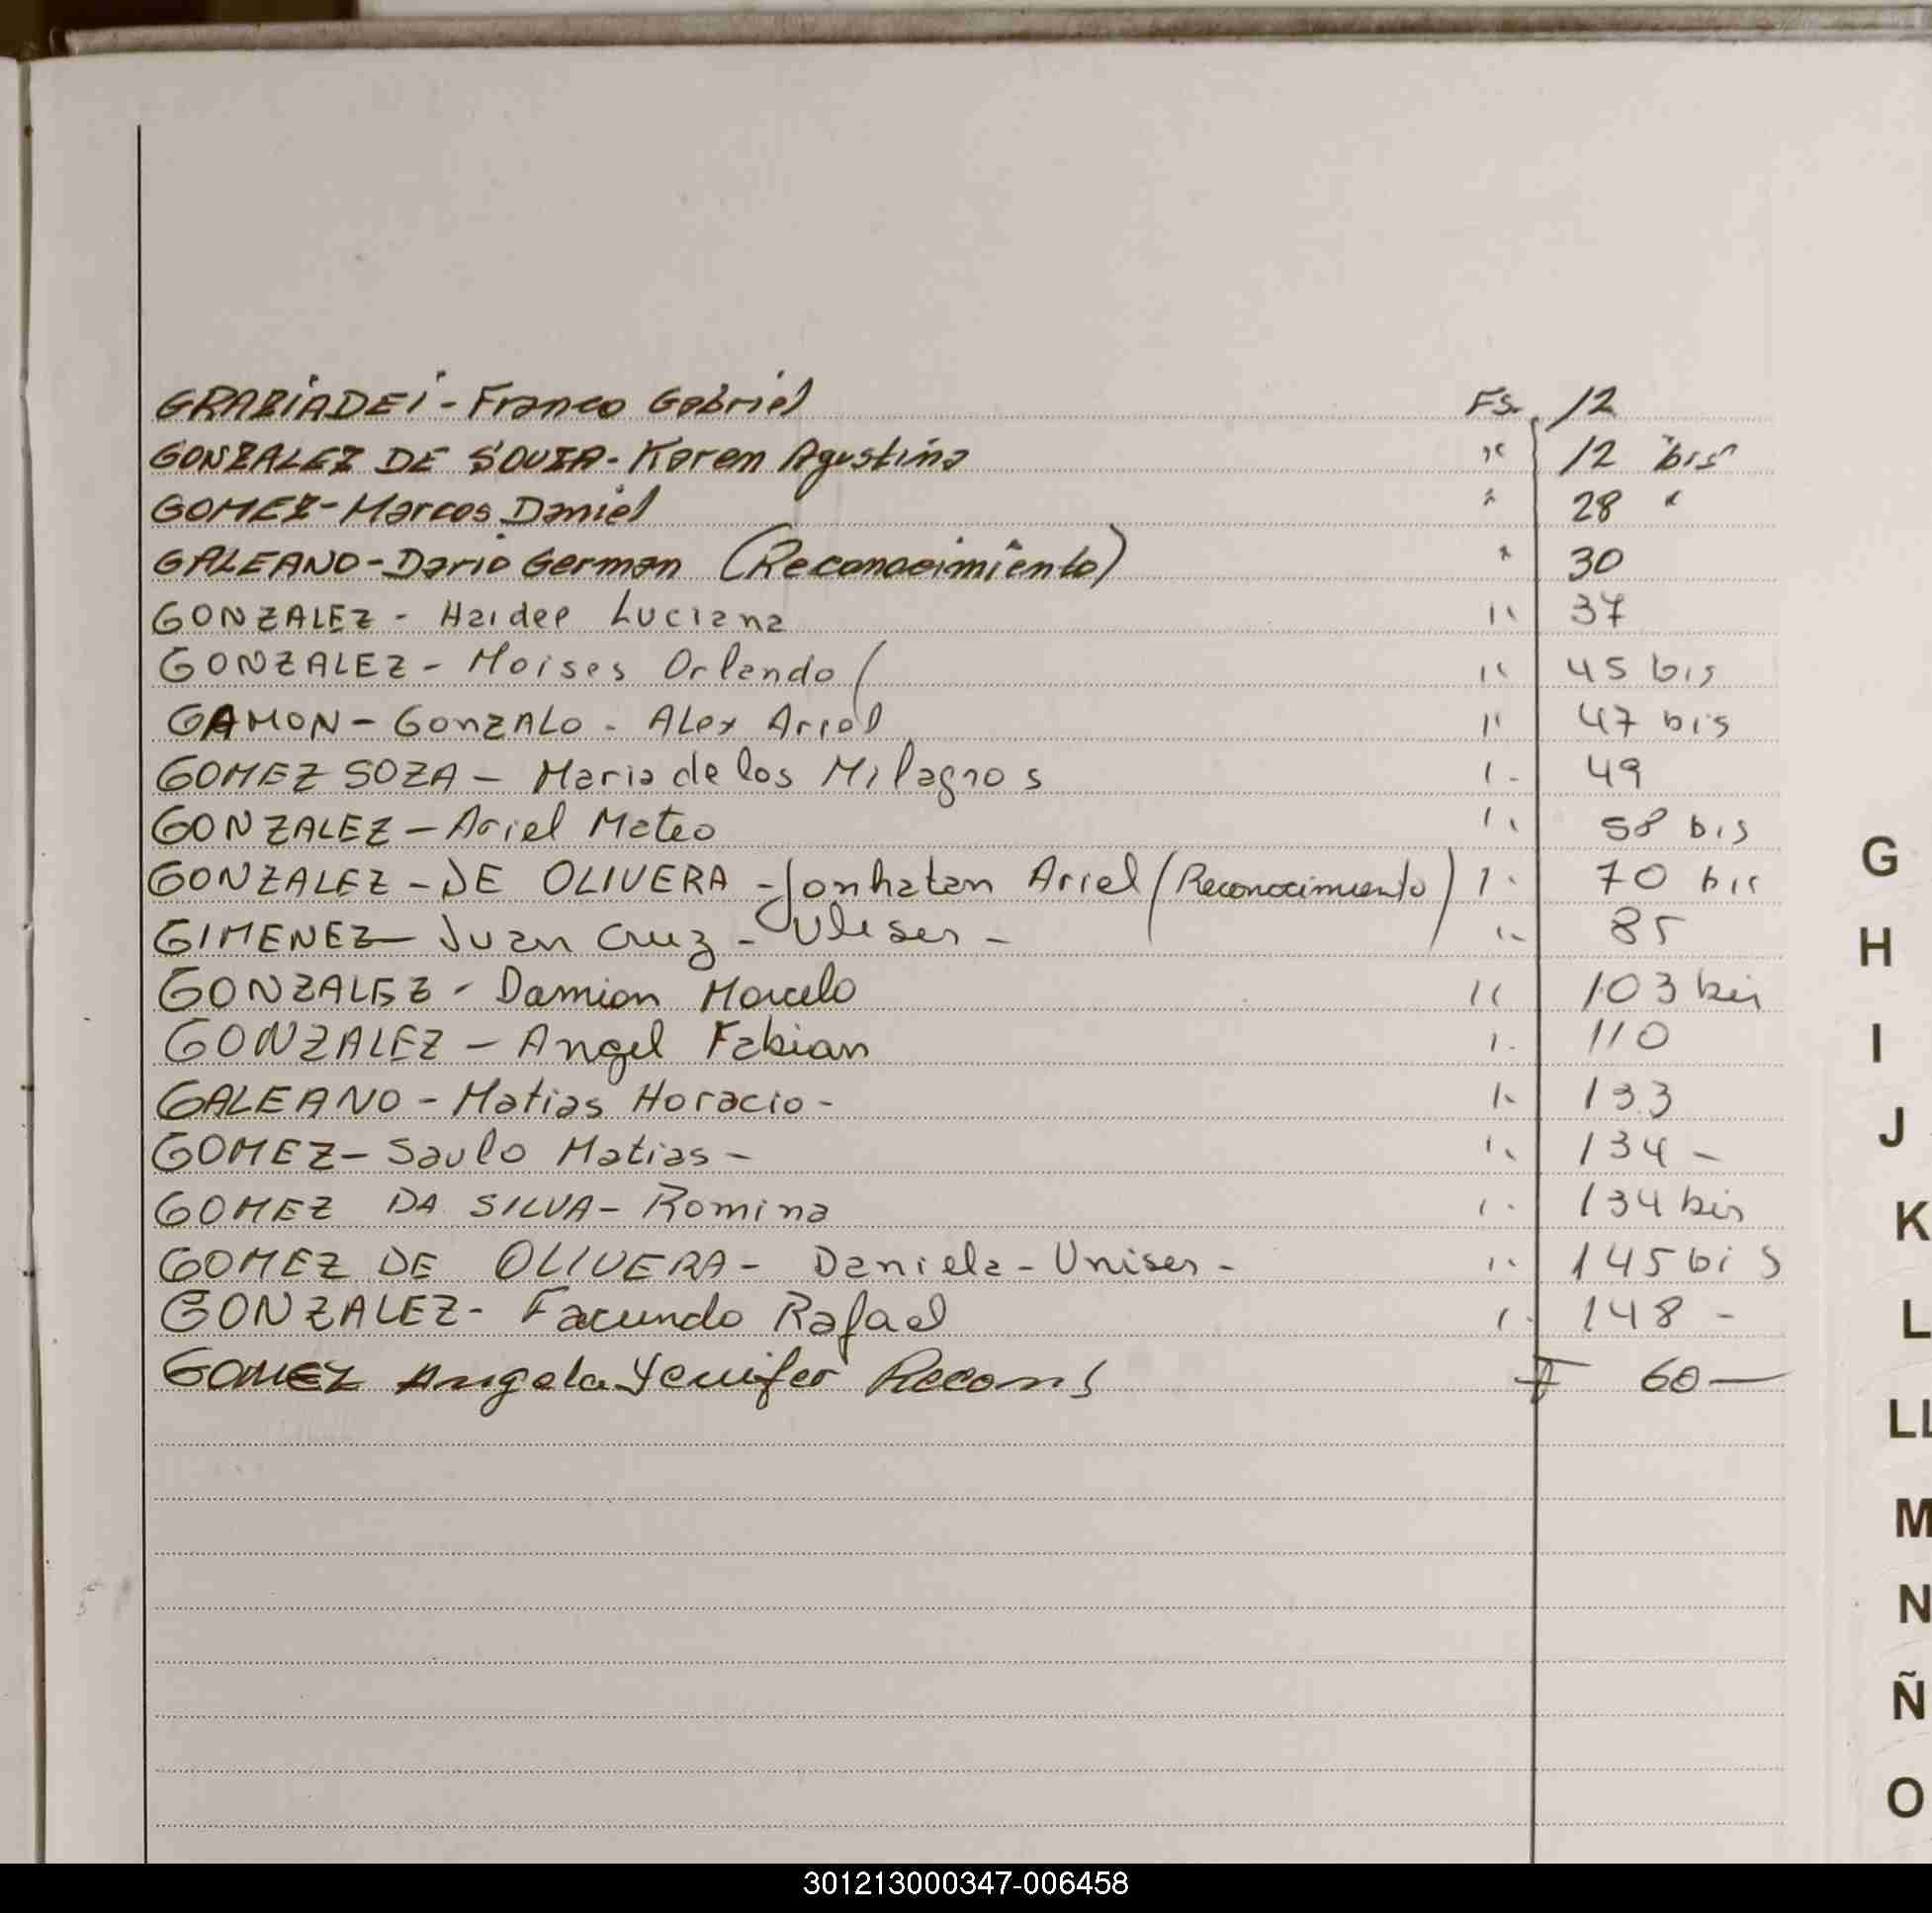 GRABIADEI - Franco Gabriel Fs. 12
GONZALEZ DE SOUZA - Karen Agustina " 12 bis
GOMEZ - Marcos Daniel " 28 "
GALEANO - Dario German (Reconocimiento) " 30
GONZALEZ - Haidee Luciana " 37
GONZALEZ - Moises Orlando " 45 bis
GAMON - GonzALo - ALex Ariel " 47 bis
GOMEZ SOZA - Maria de los Milagros " 49
GONZALEZ - Ariel Mateo " 58 bis
GONZALEZ - DE OLIVERA - Jonhatan Ariel (Reconocimiento) " 70 bis
GIMENEZ - Juan Cruz - Uliser - " 85
GONZALEZ - Damian Marcelo " 103 bis
GONZALEZ - Angel Fabian " 110
GALEANO - Matias Horacio - " 133
GOMEZ - Saulo Matias - " 134 -
GOMEZ DA SILVA - Romina " 134 bis
GOMEZ DE OLIVERA - Daniela - Uniser - " 145 bis
GONZALEZ - Facundo Rafael " 148 -
GOMEZ Angela Yenifer F 60 —
G
H
I
J
K
L
LL
M
N
Ñ
O
301213000347-006458